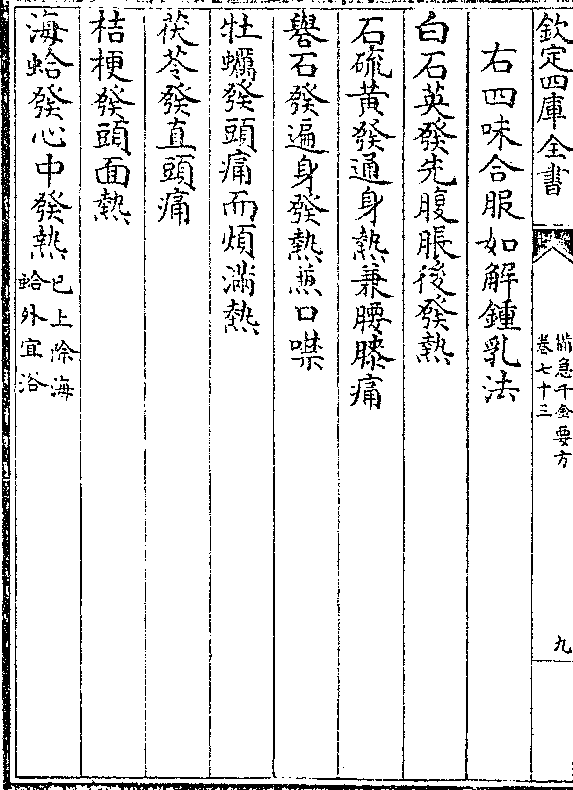 欽定四庫全書
備急千金要方
卷七十三
九
右四味合服如解鍾乳法
白石英發先腹脹後發熱
石硫黃發通身熱兼腰膝痛
礜石發遍身發熱兼口噤
牡蠣發頭痛而煩滿熱
茯苓發直頭痛
桔梗發頭面熱
海蛤發心中發熱
已上除海
蛤外宜浴